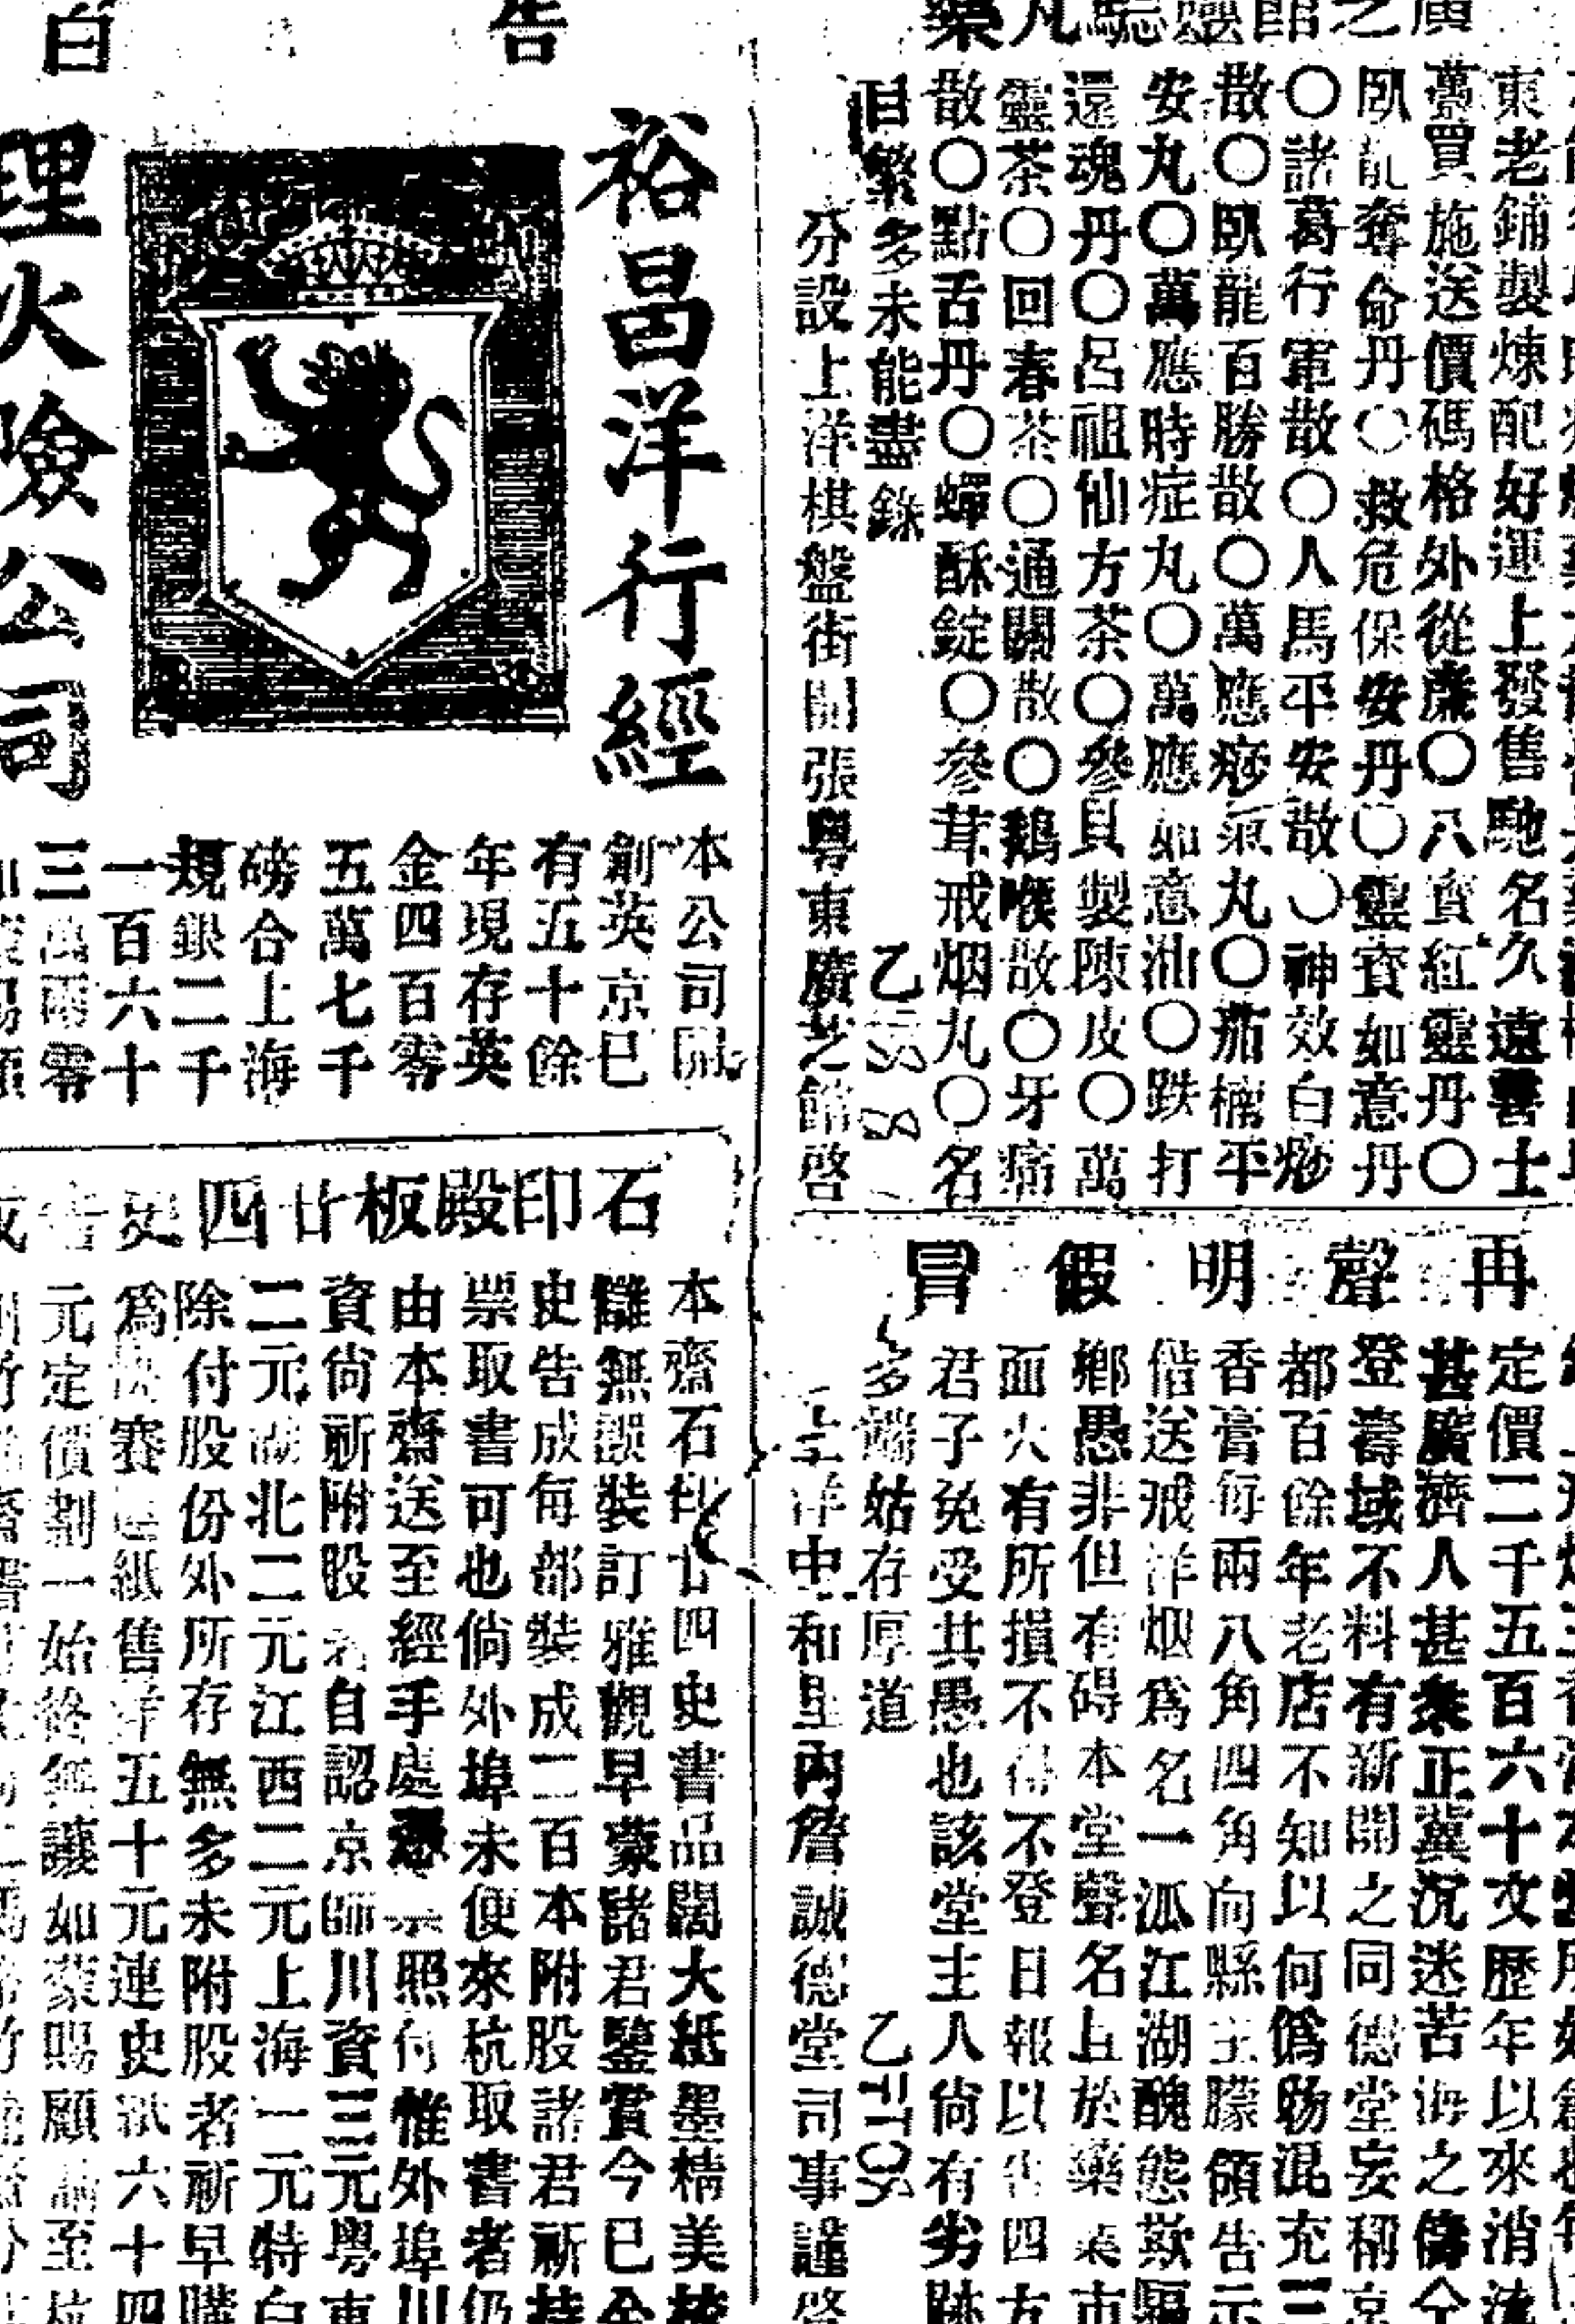 廣之館靈驗丸藥
東老鋪製煉配好運上發售馳名久遠善士
萬買施送價碼格外從亷〇八寶紅靈丹〇
臥龍奪命丹〇救危保安丹〇靈寶如意丹
〇諸葛行軍散〇人馬平安散〇神效白痧
散〇臥龍百勝散〇萬應痧氣丸〇茄楠平
安丸〇萬應時症丸〇萬應如意油〇跌打
還魂丹〇呂祖仙方茶〇參貝製陳皮〇萬
靈茶〇回春茶〇通關散〇鵝喉散〇牙痛
散〇點舌丹〇蟬酥錠〇參茸戒烟丸〇名
目繁多未能盡錄
分設上洋棋盤街開張粵東廣芝館啓
再聲明假冒
定價二千五百六十文歷年以來消
甚廣濟人甚衆正冀沉迷苦海之儔仝
登壽域不料有新開之同德堂妄稱京
都百餘年老店不知以何僞物混充三
香膏每兩八角四角向縣主朦頒告示
偕送戒洋烟爲名一派江湖醜態欺騙
鄉愚非但有碍本堂聲名且於藥業市
面大有所損不得不登日報以告四方
君子免受其愚也該堂主人尙有劣跡
多端姑存厚道
上洋中和里內詹誠德堂司事謹啓
告白
裕昌洋行經
理火險公司
本公司開
創英京已
有五十餘
年現存英
金四百零
五萬七千
磅合上海
規銀二千
一百六十
三萬兩零
石印殿板廿四史書成
本齋石印廿四史書品闊大紙墨精美校
讎無誤裝訂雅觀早蒙諸君鑒賞今已全
史告成每部裝成二百本附股諸君祈持
票取書可也倘外埠未便來杭取書者仍
由本齋送至經手處憑票照付惟外埠川
資尙祈附股者自認京師川資三元粵東
二元湖北二元江西二元上海一元特白
除付股份外所存無多未附股者祈早購
爲快賽連紙售洋五十元連史紙六十四
元定價劃一始終無讓如蒙賜顧請至杭